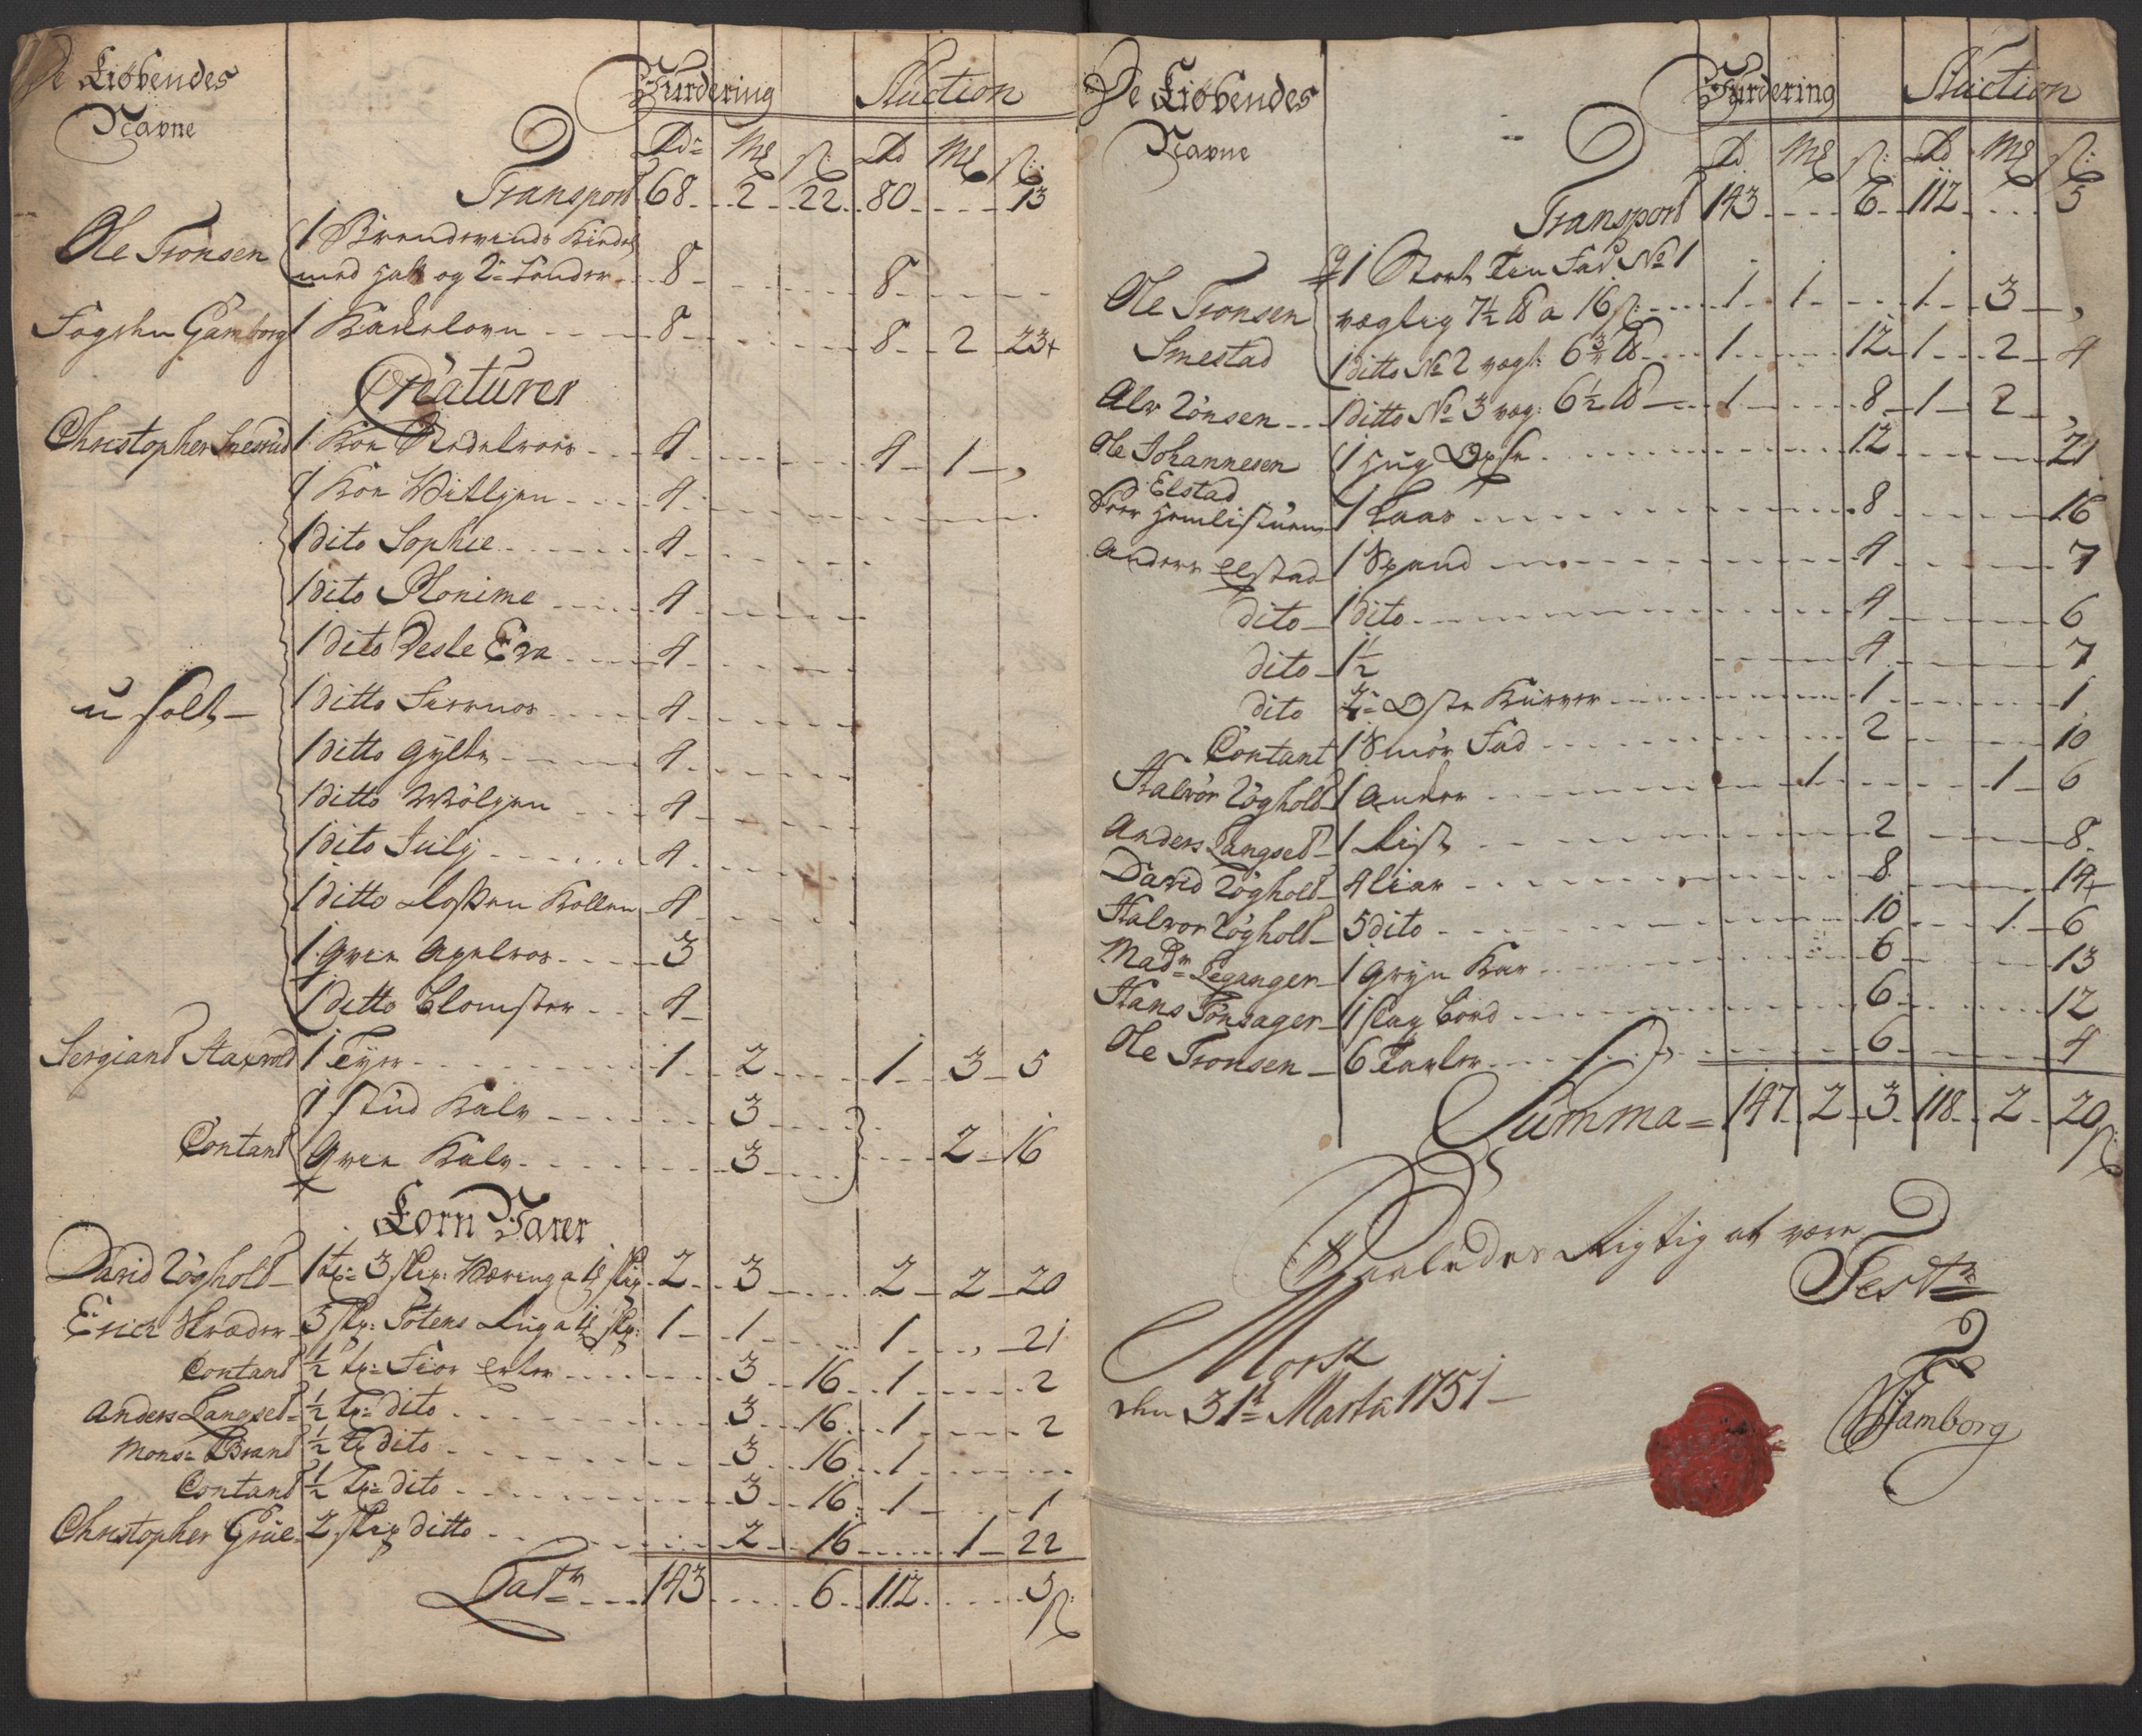 De Kiøbendes
Navne
Vurdering Auction
Rd= Mk ß: Rd Mk ß:
Transport 68 2 22 80 13
Ole Tronsen 1 Brendevinds Kiedel
med hatt og 2= Tønder 8 8
Fogden Gamborg 1 Kackelovn 8 8 2 23+
Creaturer
Christopher Snesrud 1 Koe Stedelroes 4 4 1
1 Koe Vitlyen 4
1 dito Sophie 4
1 dito Plonime 4
1 dito Vesle Eva 4
u solt 1 ditto Fiernos 4
1 ditto Gylte 4
1 ditto Mølyen 4
1 dito Julj 4
1 ditto Kollen 4
1 qvie Apelros 3
1 ditto Blomster 4
Sergiant Staxrud 1 Tyer 1 2 1 3 5
1 stud Kalv 3
Contant 1 qvie Kalv 3 2 16
Korn Varer
David Løgholt 1 tø= 3 skp: Bering a 4 skp 2 3 2 2 20
Erich Kræder 5 skp: Totens Rug a 4 skp: 1 1 1 21
Contant ½ tø= Fior erter 3 16 1 2
Anders Langset ½ tø= dito 3 16 1 2
Mons= Brant ½ tø dito 3 16 1
Contant ½ tø= dito 3 16 1 1
Christopher Grue 2 skip ditto 2 16 1 22
Latr= 143 6 112 5 ß:
De Kiøbendes
Navne
Vurdering Auction
Rd Mk ß: Rd Mk ß:
Transport 143 6 112 5
1 Stort Tin Fad No 1
Ole Tronsen vegtig 7½ ℔ a 16 ß: 1 1 1 3
Smestad 1 ditto No 2 vegt: 6¾ ℔ 1 12 1 2 4
Alv Lønsen 1 ditto No 3 veg: 6½ ℔ 1 8 1 2
Ole Johannesen 1 hug Øxse 12 21
Elstad
Peer Hemlistuen 1 Laas 8 16
Anders Elstad 1 Spand 4 7
dito 1 dito 4 6
dito 1½ 4 7
dito 2= Oste Kurver 1 1
Contant 1 Smør Fad 2 10
Halvor Løgholt 1 Anker 1 1 6
Anders Langset 1 Rist 2 8
David Løgholt 4 liar 8 14+
Halvor Løgholt 5 dito 10 1 6
Madm= Leganger 1 Gryn Kar 6 13
Hans Tønsager 1 slag bord 6 12
Ole Tronsen 6 Tavler 6 4
Summa= 147 2 3 118 2 20 ß:
Saaledes Rigtig at være
Testr=
Morsk
den 31t= Marti 1751
Gamborg